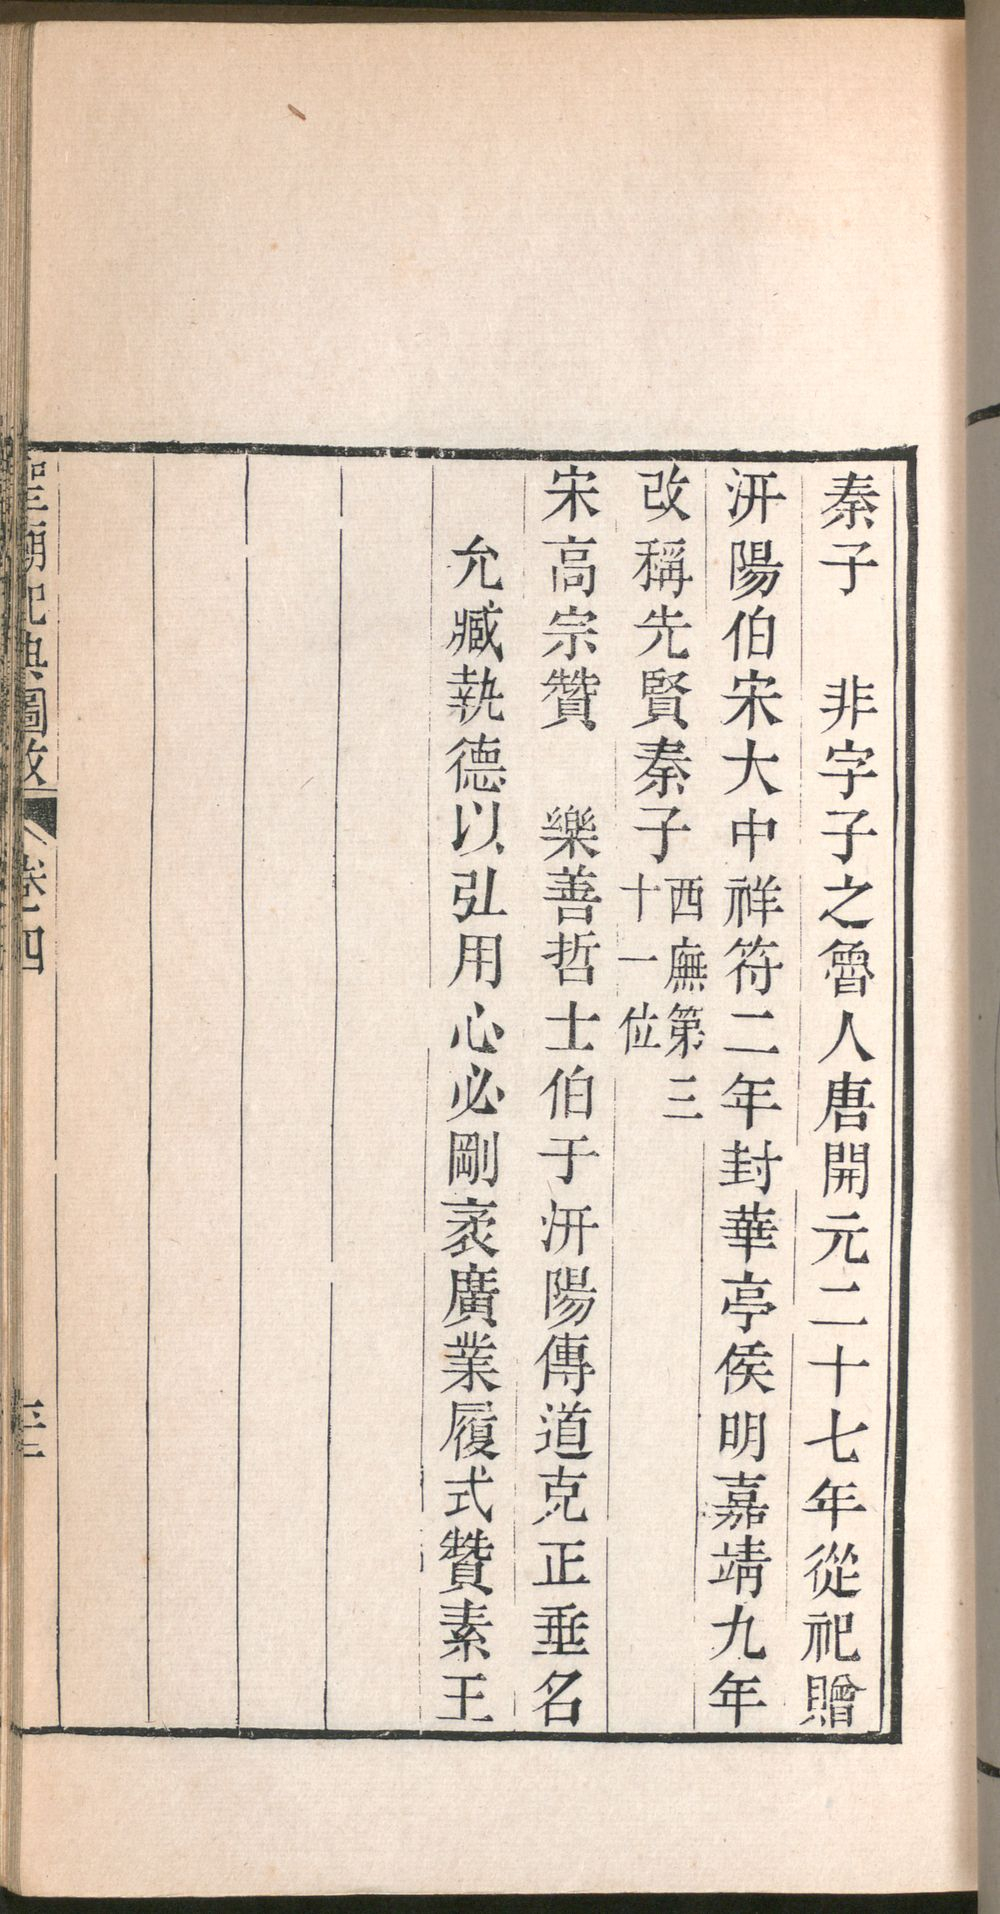 秦子　非字子之魯人唐開元二十七年從祀贈
汧陽伯宋大中祥符二年封華亭侯明嘉靖九年
改稱先賢秦子西廡第三
十一位
宋高宗贊　樂善哲士伯于汧陽傳道克正垂名
允臧執德以弘用心必剛袤廣業履式贊素王
聖廟祀典圖攷　卷四